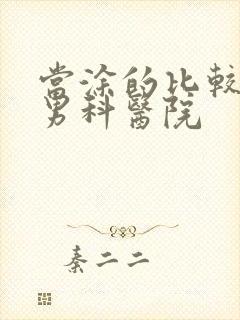 當涂的比較
男科醫院
秦二二